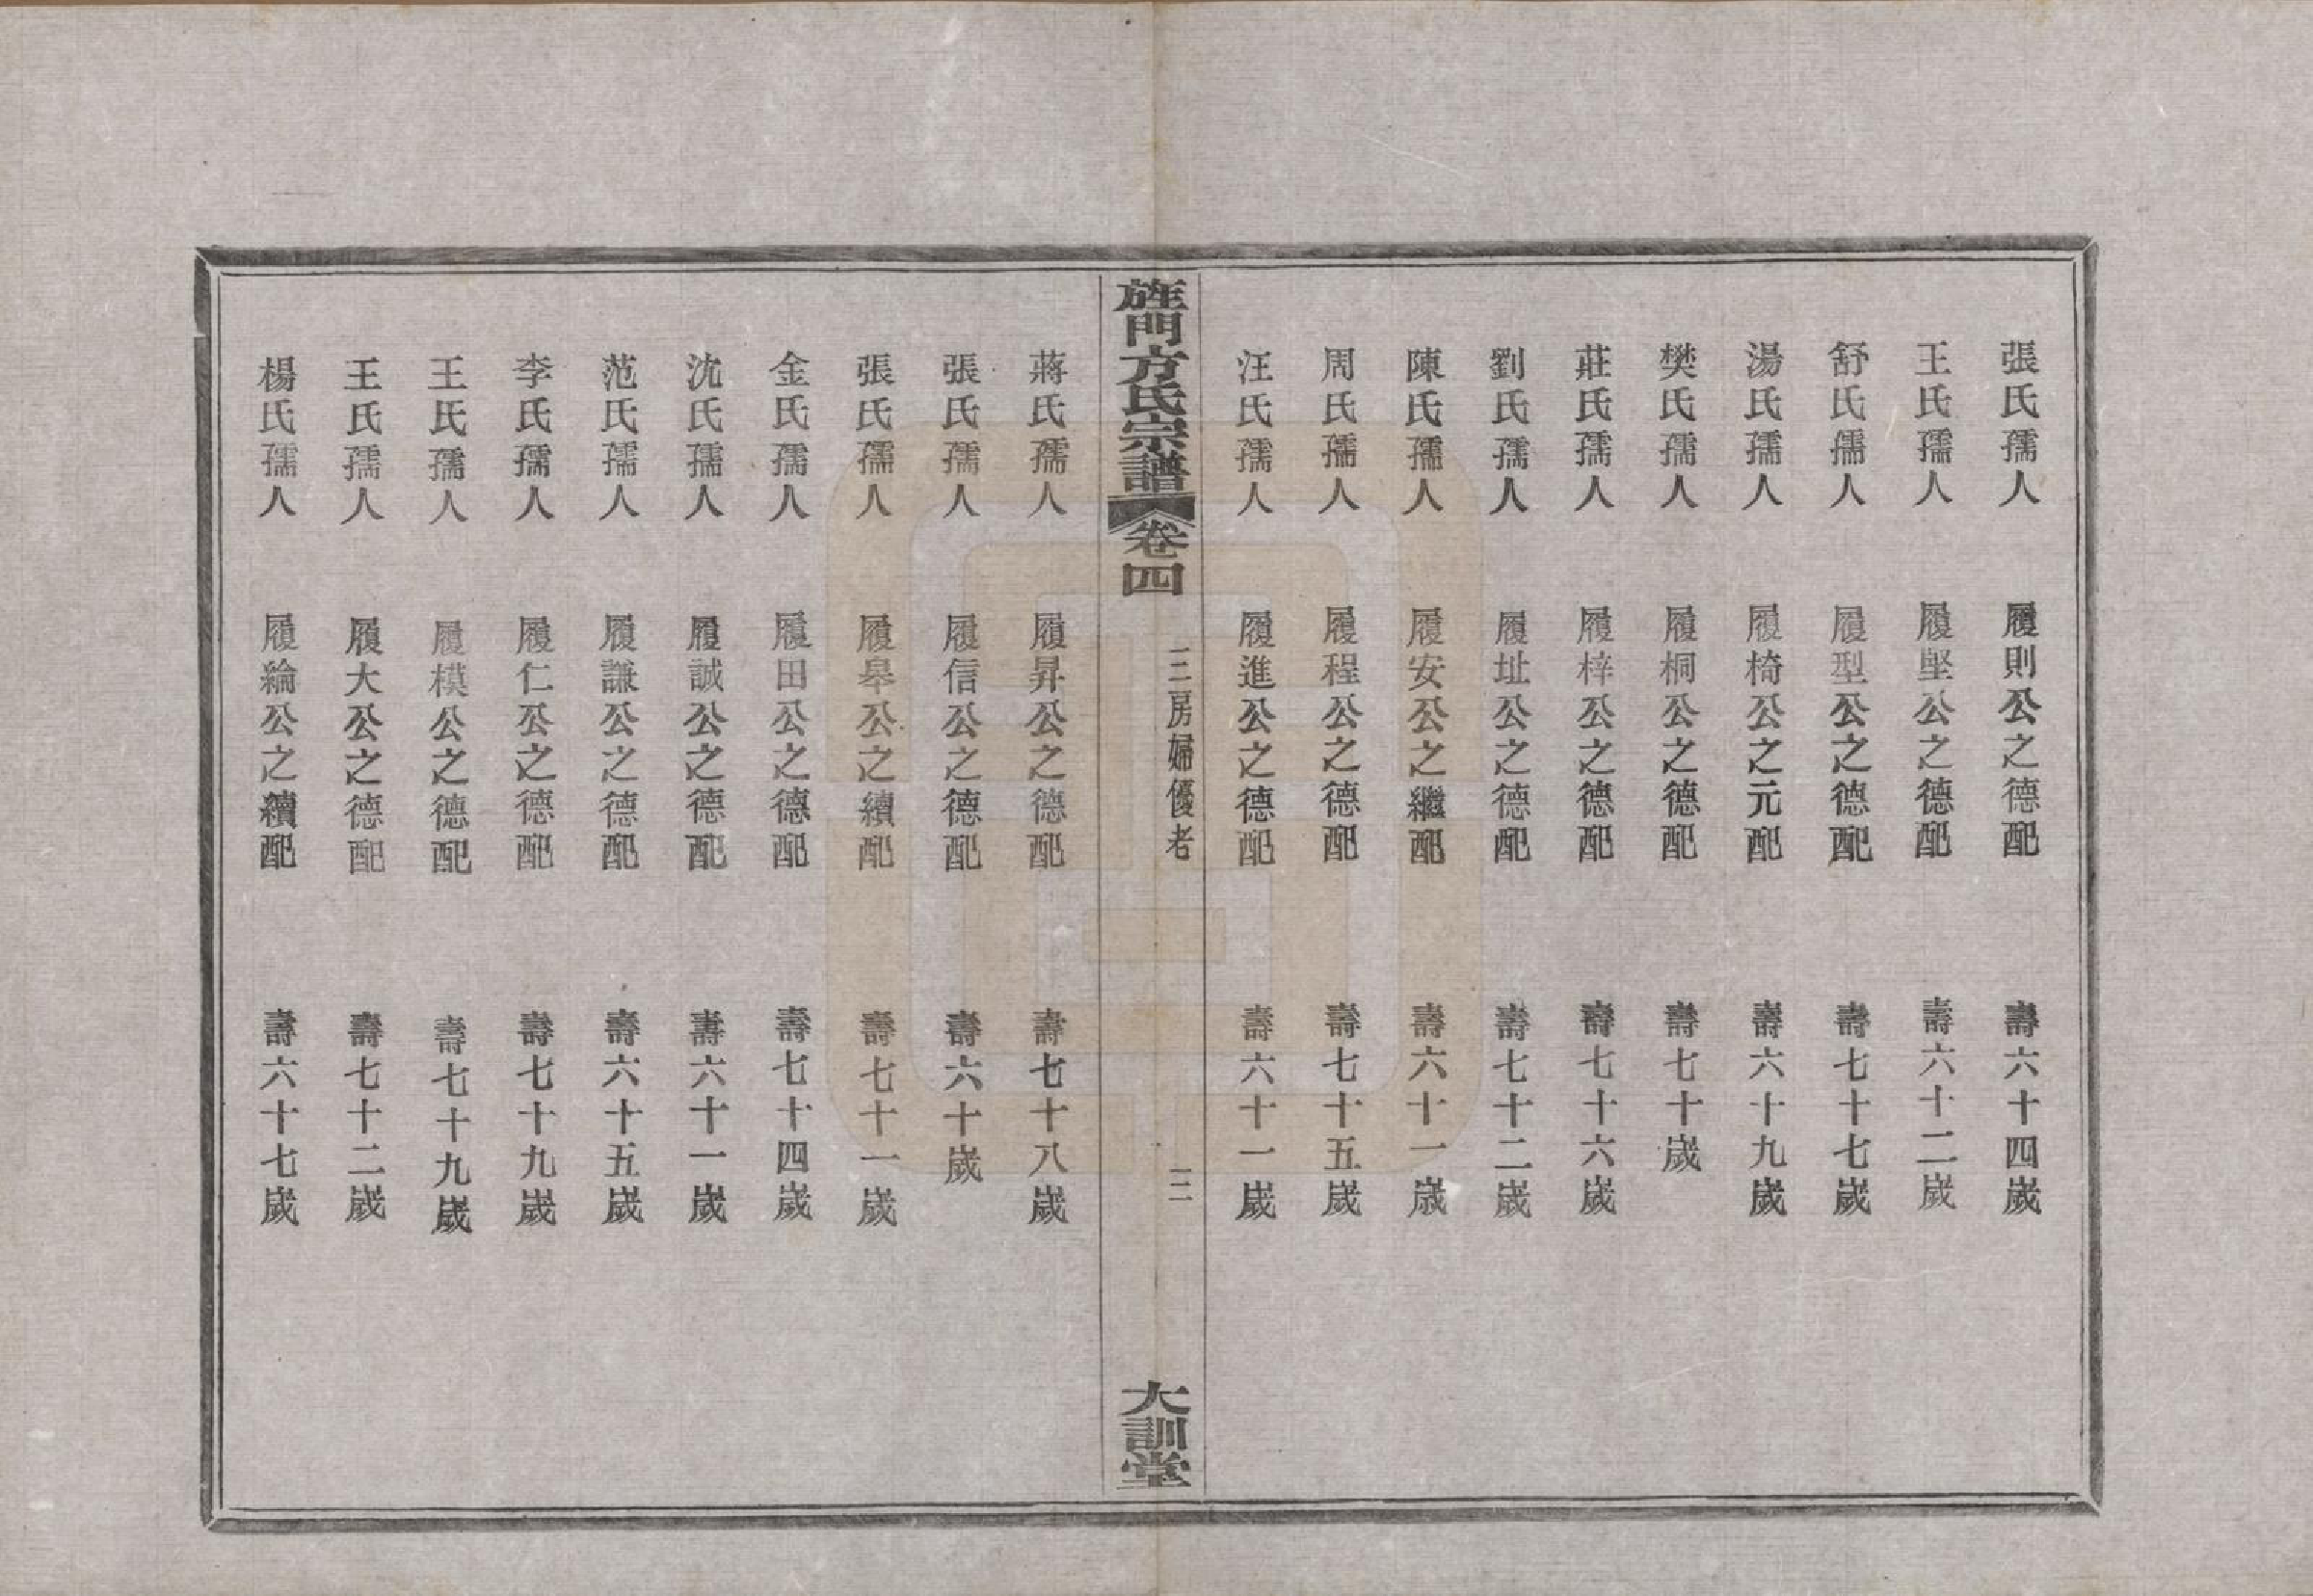 張氏孺人　履則公之德配　壽六十四歲
王氏孺人　履坚公之德配　壽六十二歲
舒氏孺人　履型公之德配　壽七十七歲
湯氏孺人　履椅公之元配　壽六十九歲
樊氏孺人　履桐公之德配　壽七十歲
莊氏孺人　履梓公之德配　壽七十六歲
劉氏孺人　履址公之德配　壽七十二歲
陳氏孺人　履安公之繼配　壽六十一歲
周氏孺人　履程公之德配　壽七十五歲
汪氏孺人　履進公之德配　壽六十一歲
旌門方氏宗譜　卷四　三房婦優老　三　大訓堂
蔣氏孺人　履昇公之德配　壽七十八歲
張氏孺人　履信公之德配　壽六十歲
張氏孺人　履皋公之續配　壽七十一歲
金氏孺人　履田公之德配　壽七十四歲
沈氏孺人　履誠公之德配　壽六十一歲
范氏孺人　履謙公之德配　壽六十五歲
李氏孺人　履仁公之德配　壽七十九歲
王氏孺人　履模公之德配　壽七十九歲
王氏孺人　履大公之德配　壽七十二歲
楊氏孺人　履綸公之續配　壽六十七歲